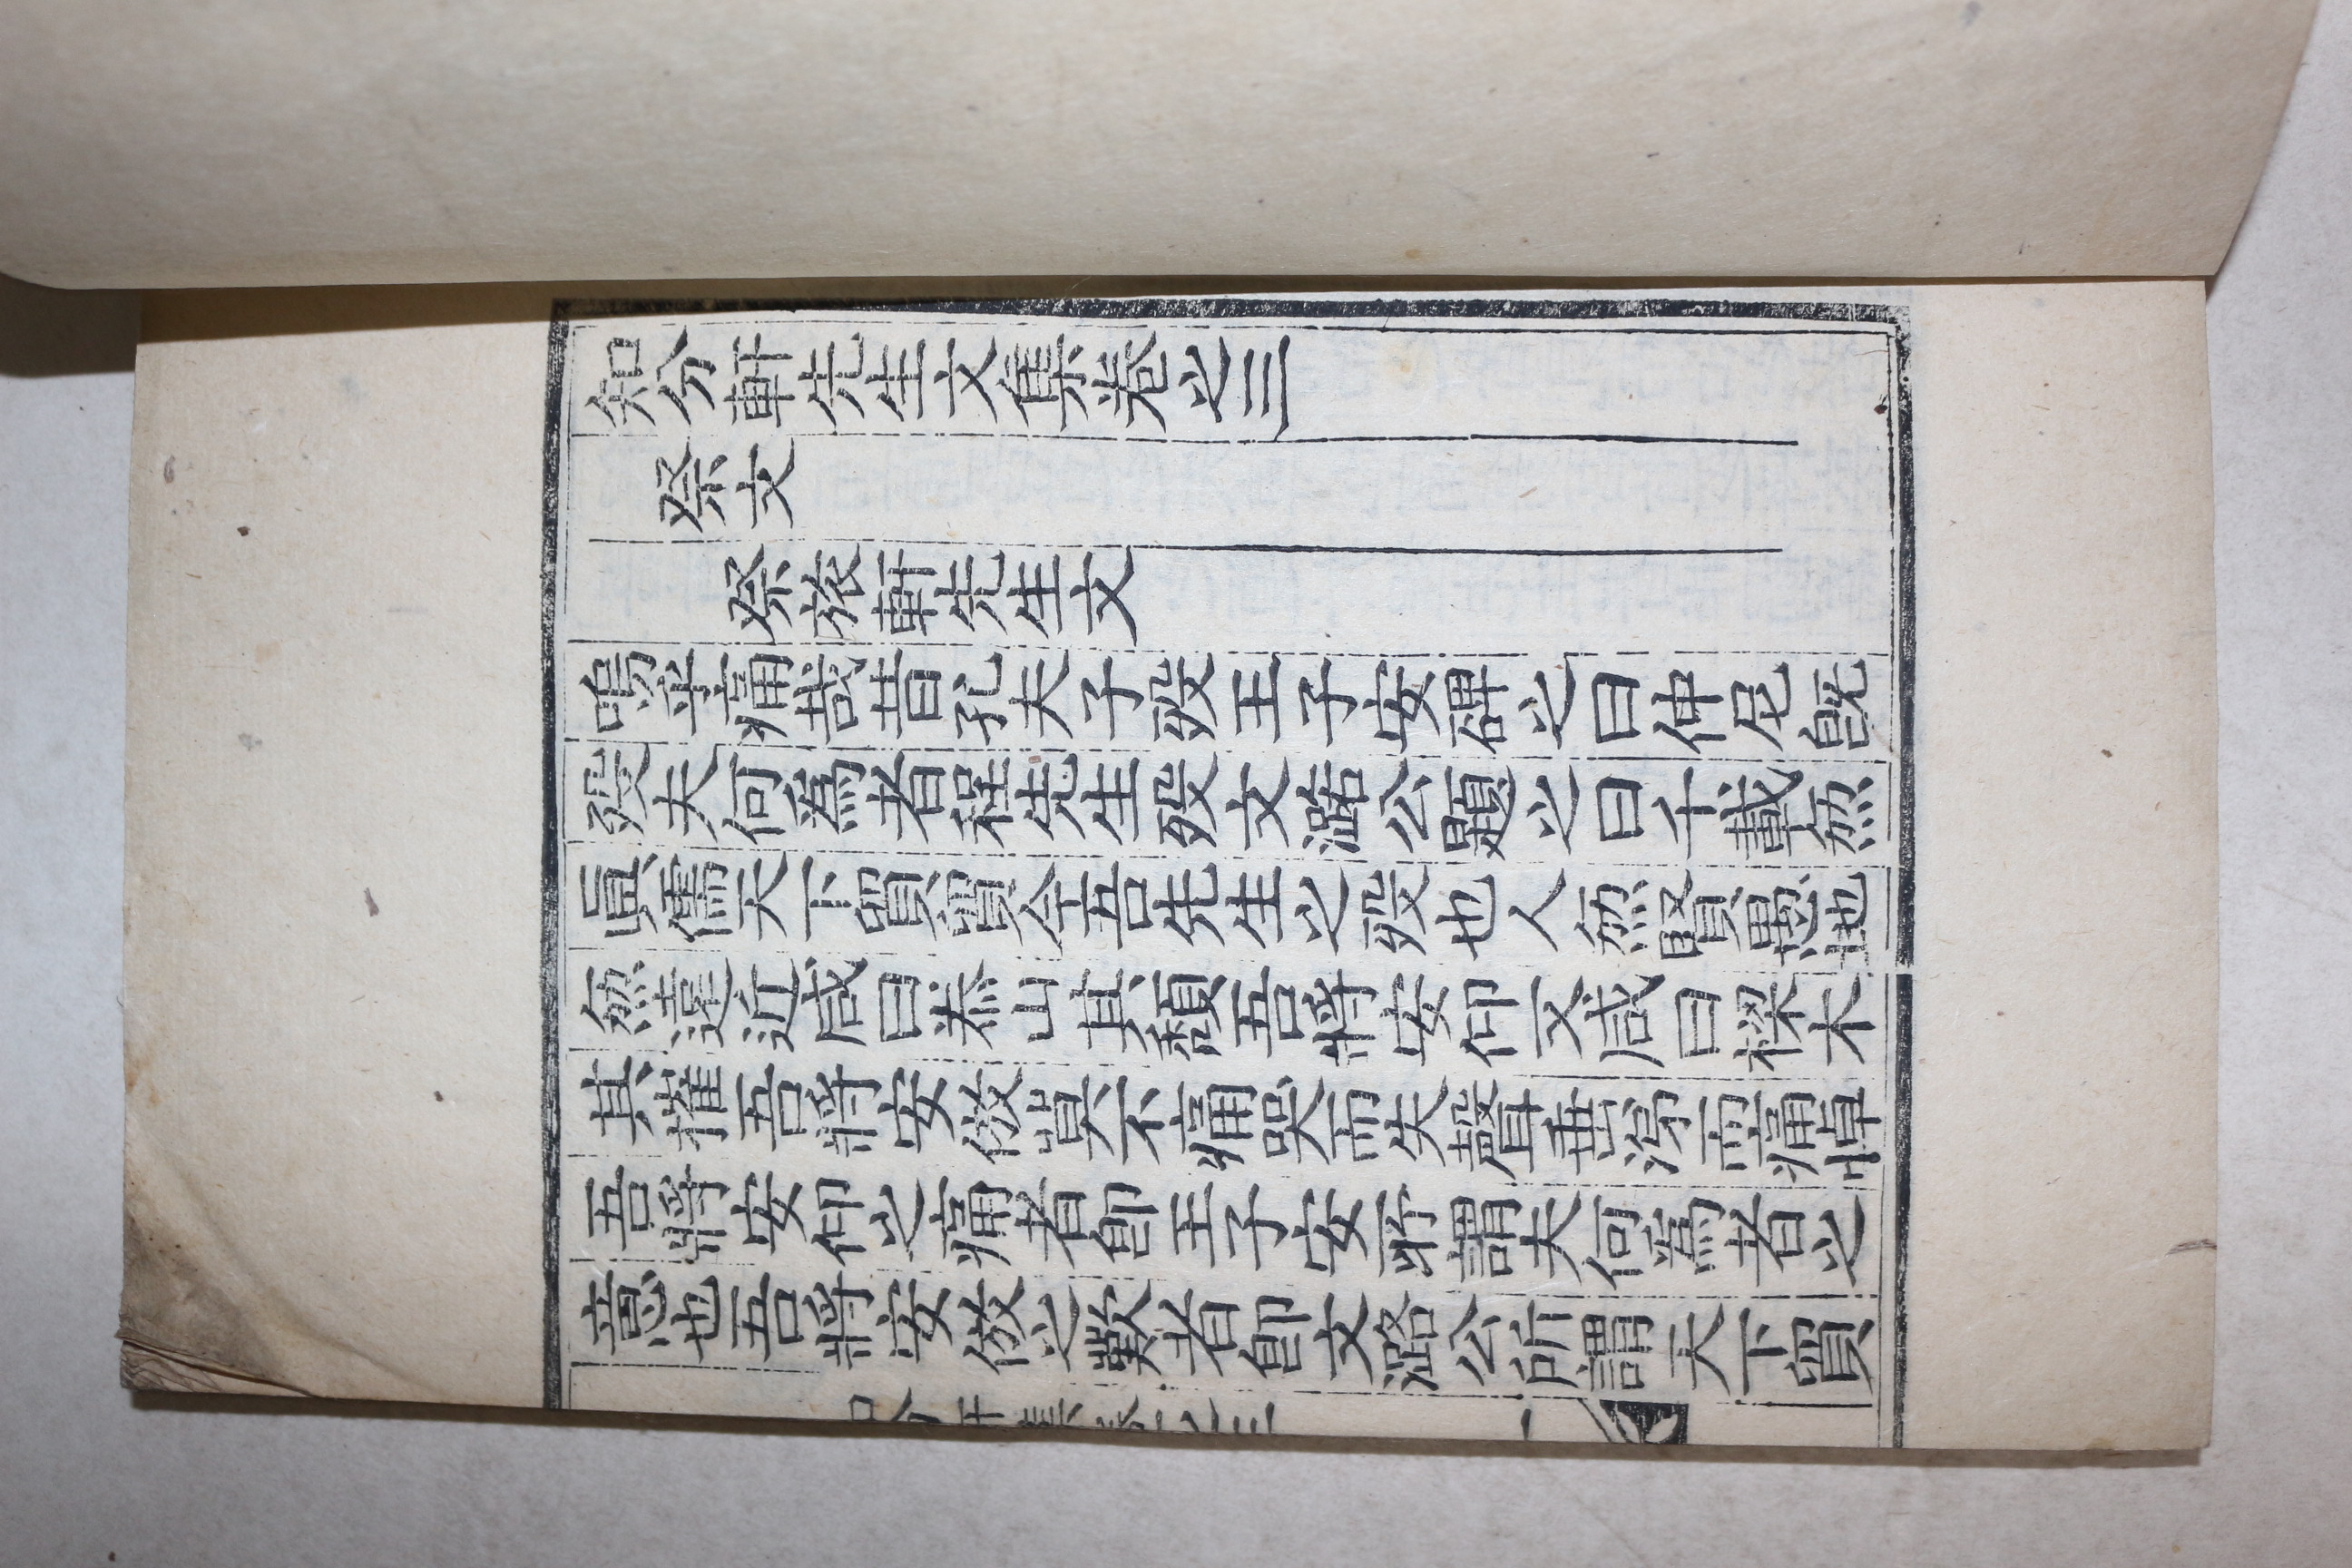 知分軒先生文集卷之三
祭文
祭旅軒先生文
嗚乎痛哉昔孔夫子歿王子安碑之曰仲尼既
歿夫何爲者程先生歿文潞公題之曰千載無
眞儒天下貿貿今吾先生之歿也人無賢愚地
無遠近咸曰泰山其頹吾將安仰又咸曰樑木
其摧吾將安倣莫不痛哭而失聲垂涕而痛悼
吾將安仰之痛者卽王子安所謂夫何爲者之
意也吾將安倣之歎者卽文潞公所謂天下貿